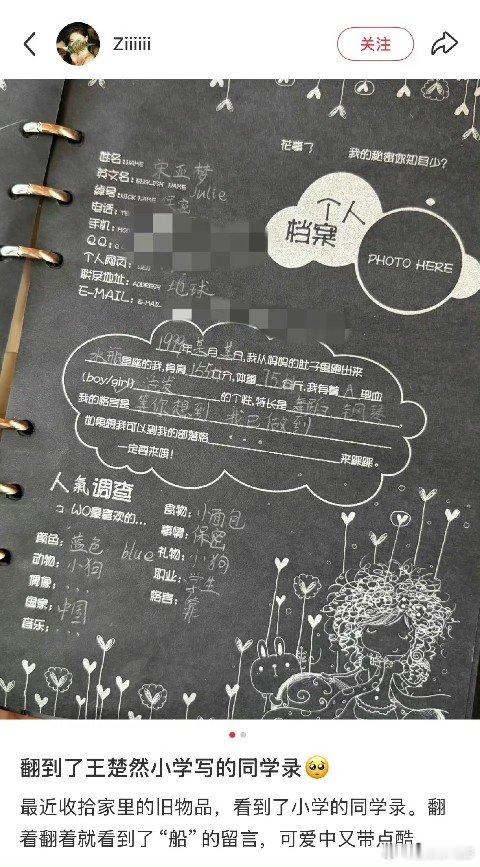 Ziiiiii
关注
花事了 我的秘密你知多少?
姓名:NAME 宋亚梦
英文名:ENGLISH NAME Julie
绰号:NICK NAME 保密
电话:
手机:
QQ:
个人网页: 地球
联系地址:ADDRESS
E-MAIL:E-MAIL
个人
档案
PHOTO HERE
水瓶星座的我,1999年某月某日,我从妈妈的肚子里跑出来
(boy/girl) 活泼 的个性,特长是 舞蹈 钢琴
身高 155 公分,体重 75 公斤,我有着 A 型血
我的格言是 等你想到 我已做到
如果想我可以到我的部落格 . . . 来踩踩。
一定要来哦!
人氣调查
WO最喜欢的...
颜色: 蓝色 blue
动物: 小狗
偶像: . . .
国家: 中国
音乐: . . .
食物: 小面包
事情: 保密
礼物: 小狗
职业: 学生
格言: 靠
翻到了王楚然小学写的同学录🥺
最近收拾家里的旧物品,看到了小学的同学录。翻
着翻着就看到了“船”的留言,可爱中又带点酷